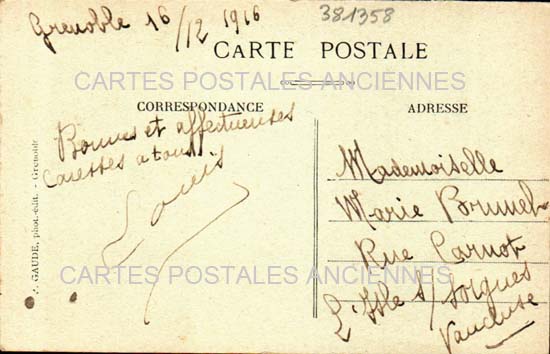 Grenoble 16/12 1916
381358
CARTE POSTALE
CARTES POSTALES ANCIENNES
CORRESPONDANCE
ADRESSE
Bonnes et affectueuses
caresses a tous
Louis
Mademoiselle
Marie Brunel
Rue Carnot
L'Isle s/ Sorgues
Vaucluse
CARTES POSTALES ANCIENNES
A. GAUDE, phot.-édit. - Grenoble